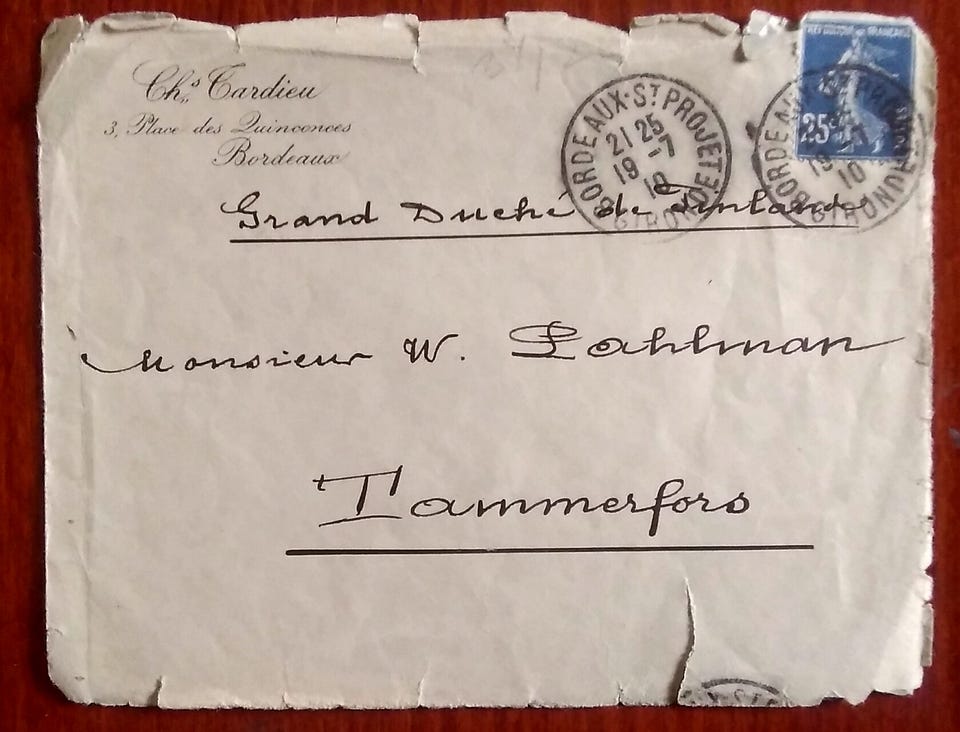 Chs. Tardieu
3, Place des Quinconces
Bordeaux
BORDEAUX-ST PROJET
21 25
19 -7
10
GIRONDE
REPUBLIQUE FRANÇAISE
25
BORDEAUX-ST PROJET
19 -7
10
GIRONDE
Grand Duché de Finlande
Monsieur W. Pahlman
Tammerfors